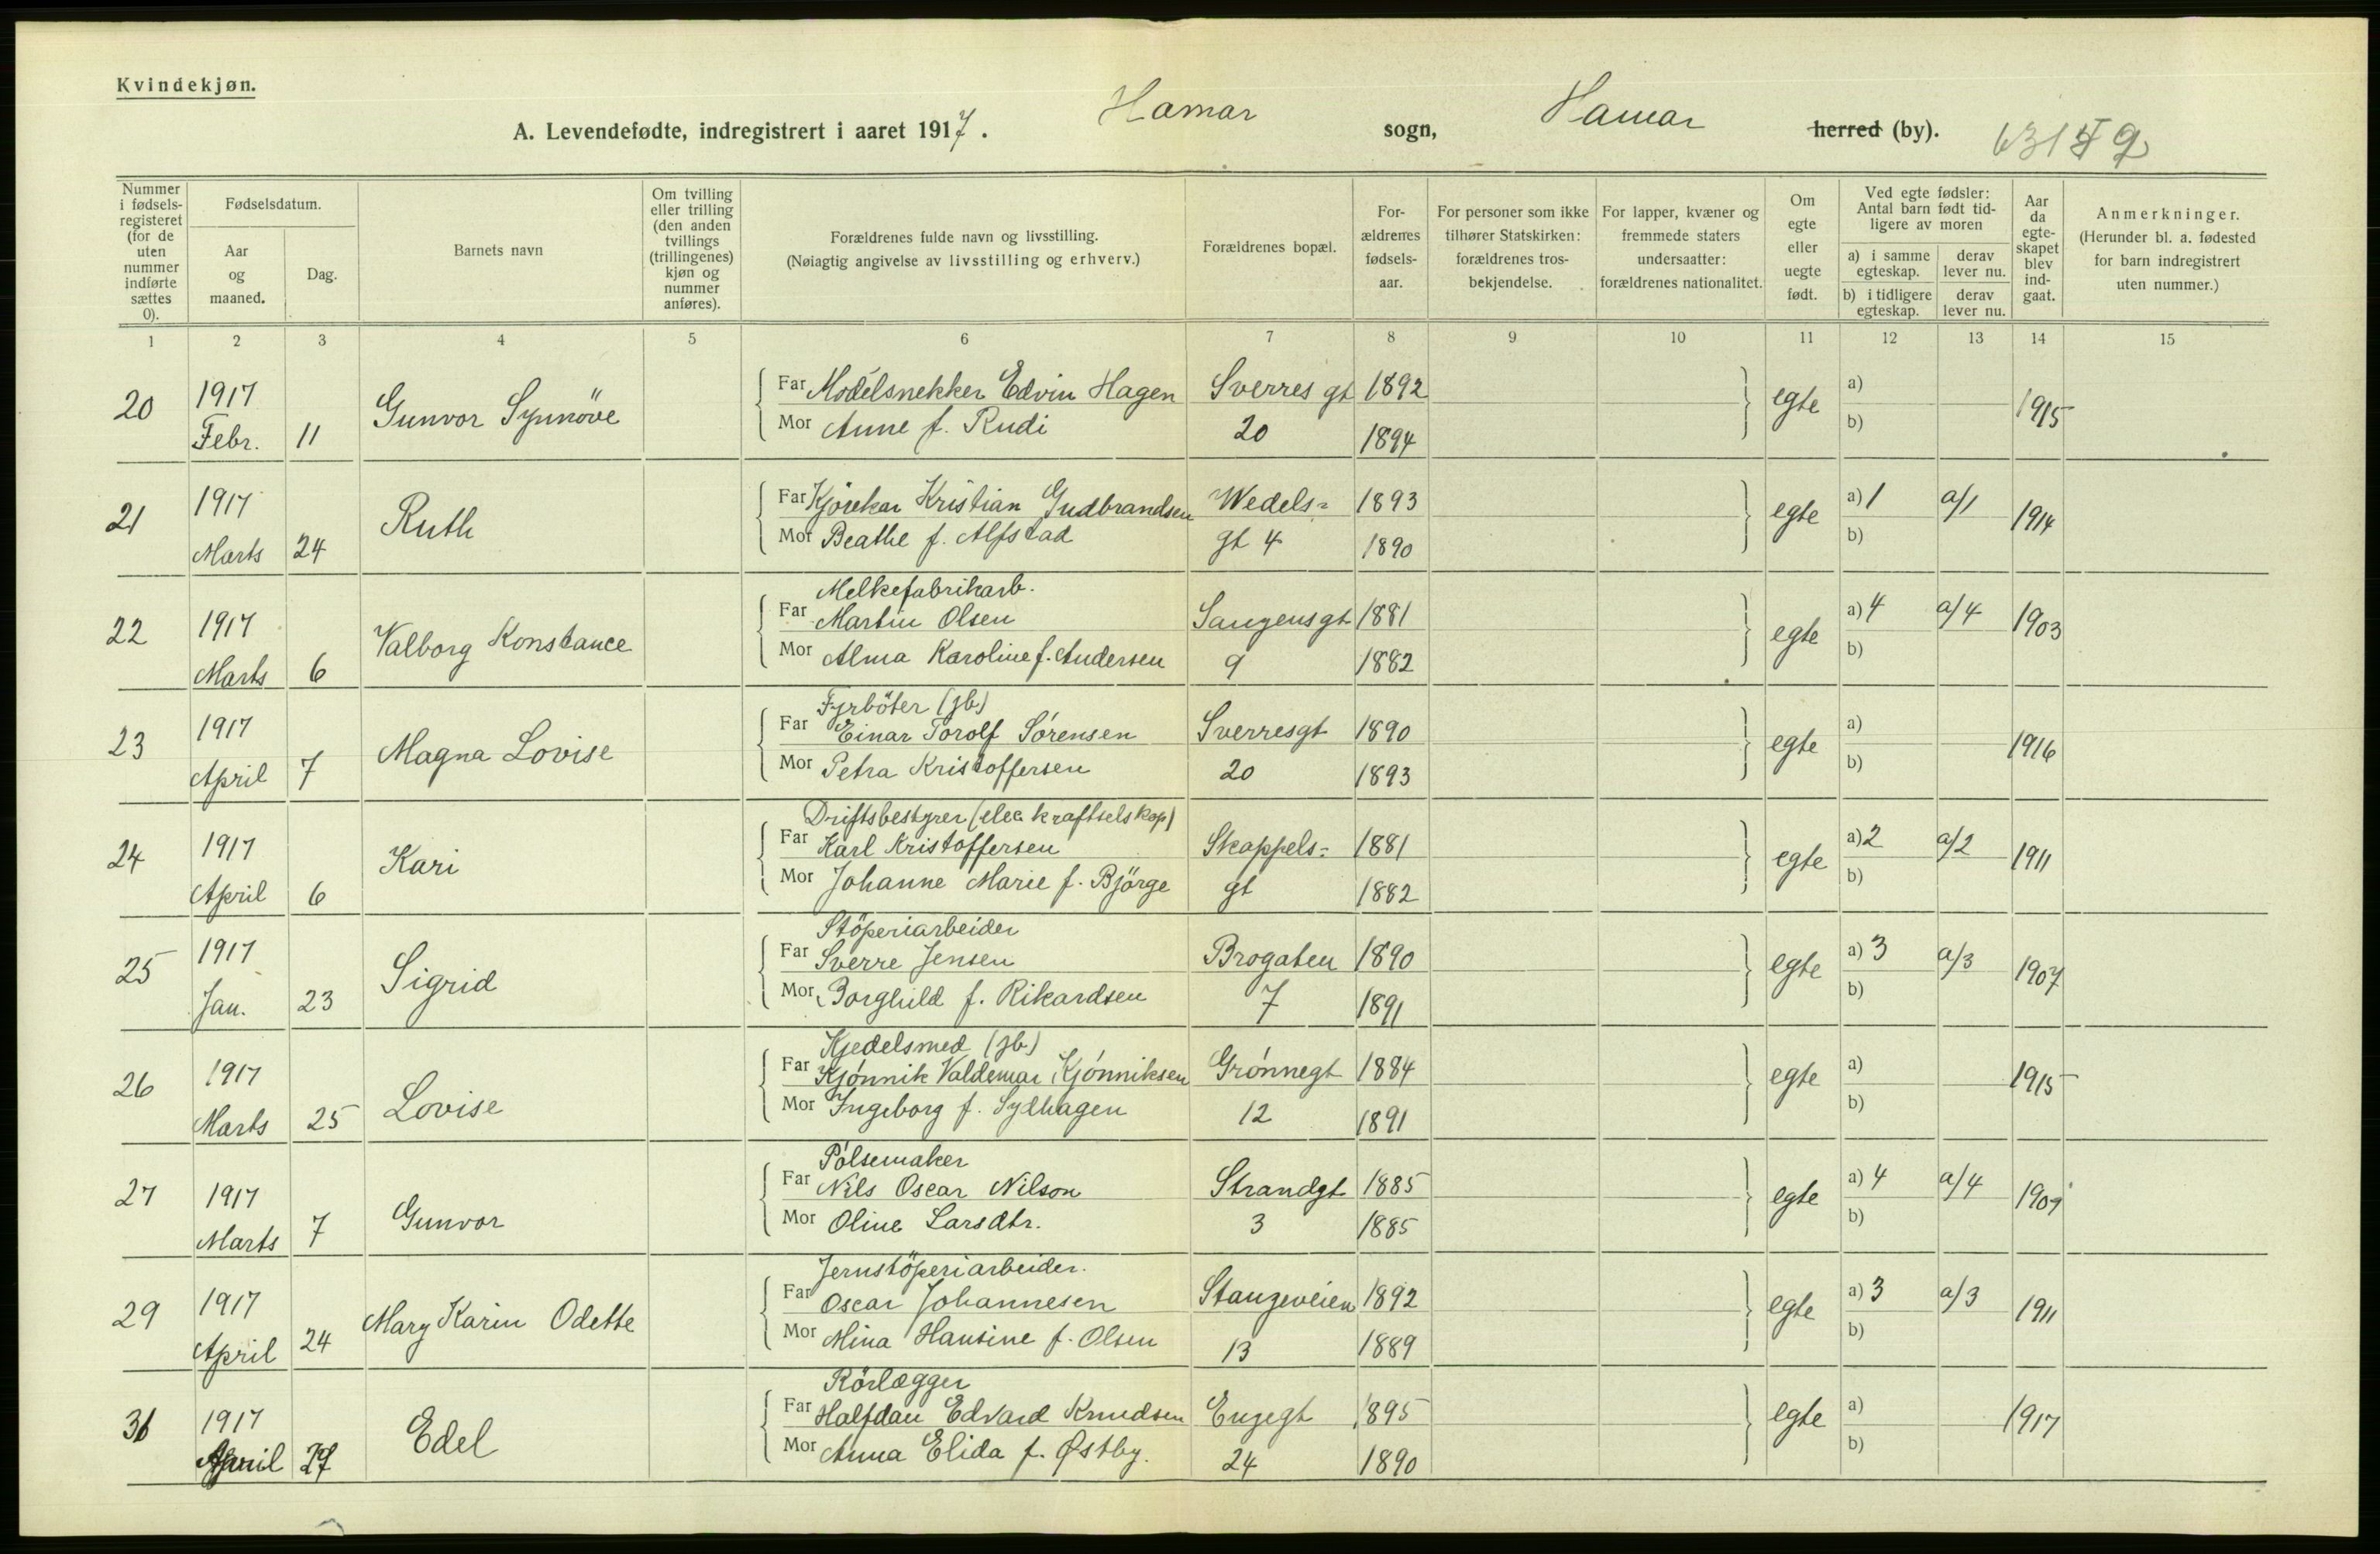 Kvindekjøn.
A. Levendefødte, indregistrert i aaret 1917. Hamar sogn, Hamar herred (by).
Nummer i fødsels-registeret (for de uten nummer indførte sættes 0).
Fødselsdatum.
Aar og maaned.
Dag.
Barnets navn
Om tvilling eller trilling (den anden tvillings (trillingenes) kjøn og nummer anføres).
Forældrenes fulde navn og livsstilling.
(Nøiagtig angivelse av livsstilling og erhverv.)
Forældrenes bopæl.
For-ældrenes fødsels-aar.
For personer som ikke tilhører Statskirken: forældrenes tros-bekjendelse.
For lapper, kvæner og fremmede staters undersaatter: forældrenes nationalitet.
Om egte eller uegte født.
Ved egte fødsler: Antal barn født tid-ligere av moren
a) i samme egteskap.
derav lever nu.
b) i tidligere egteskap.
derav lever nu.
Aar da egte-skapet blev ind-gaat.
Anmerkninger.
(Herunder bl. a. fødested for barn indregistrert uten nummer.)
1 2 3 4 5 6 7 8 9 10 11 12 13 14 15
20 1917 Gunvor Synnöve Far Modelsnekker Edvin Hagen Sverres gt 1892 egte a) 1915
Febr. 11 Mor Anne f. Rudi 20 1894 b)
21 1917 Ruth Far Kjörekar Kristian Gudbrandsen Wedels= 1893 egte a) 1 a/1 1914
Marts 24 Mor Beathe f. Alfstad gt 4 1890 b)
Melkefabrikarb.
22 1917 Valborg Konstance Far Martin Olsen Sangensgt 1881 egte a) 4 a/4 1903
Marts 6 Mor Alma Karoline f. Andersen 9 1882 b)
Fyrböter (jb)
23 1917 Magna Lovise Far Einar Torolf Sörensen Sverresgt 1890 egte a) 1916
April 7 Mor Petra Kristoffersen 20 1893 b)
Driftsbestyrer (elec. kraftselskap)
24 1917 Kari Far Karl Kristoffersen Skappels= 1881 egte a) 2 a/2 1911
April 6 Mor Johanne Marie f. Björge gt 1882 b)
Stöperiarbeider
25 1917 Sigrid Far Sverre Jensen Brogaten 1890 egte a) 3 a/3 1907
Jan. 23 Mor Borghild f. Rikardsen 7 1891 b)
Kjedelsmed (jb.)
26 1917 Lovise Far Kjönnik Valdemar Kjönniksen Grönnegt 1884 egte a) 1915
Marts 25 Mor Ingeborg f. Sydhagen 12 1891 b)
Pölsemaker
27 1917 Gunvor Far Nils Oscar Nilson Strandgt 1885 egte a) 4 a/4 1909
Marts 7 Mor Oline Larsdtr. 3 1885 b)
Jernstöperiarbeider.
29 1917 Mary Karin Odette Far Oscar Johannesen Stangeveien 1892 egte a) 3 a/3 1911
April 24 Mor Mina Hansine f. Olsen 13 1889 b)
Rörlægger
31 1917 Edel Far Halfdan Edvard Knudsen Engegt 1895 egte a) 1917
April Mor Anna Elida f. Østby. 24 1890 b)